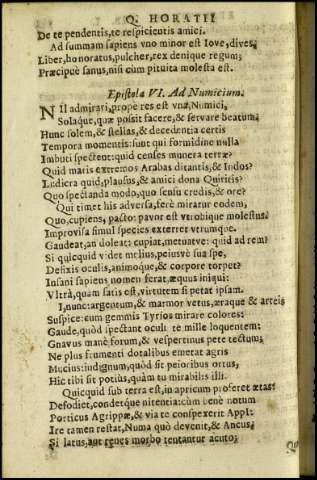 Q. HORATII
De te pendentis, te respicientis amici.
Ad summam sapiens vno minor est Ioue, diues,
Liber, honoratus, pulcher, rex denique regum;
Præcipuè sanus, nisi cùm pituita molesta est.
Epistola VI. Ad Numicium.
NIl admirari, prope res est vna, Numici,
Solaque, quæ possit facere, & seruare beatum.
Hunc solem, & stellas, & decedentia certis
Tempora momentis: sunt qui formidine nulla
Imbuti spectent: quid censes munera terræ?
Quid maris extremos Arabas ditantis, & Indos?
Ludicra quid, plausus, & amici dona Quiritis?
Quo spectanda modo, quo sensu credis, & ore?
Qui timet his aduersa, ferè miratur eodem,
Quo, cupiens, pacto: pauor est vtrobique molestus.
Improuisa simul species exterret vtrumque.
Gaudeat, an doleat; cupiat, metuatve: quid ad rem?
Si quicquid videt melius, peiusve sua spe,
Defixis oculis, animoque, & corpore torpet?
Insani sapiens nomen ferat, æquus iniqui:
Vltrà, quàm satis est, virtutem si petat ipsam.
I, nunc: argentum, & marmor vetus, æraque & arteis
Suspice: cum gemmis Tyrios mirare colores:
Gaude, quòd spectant oculi te mille loquentem:
Gnauus manè forum, & vespertinus pete tectum;
Ne plus frumenti dotalibus emetat agris
Mucius: indignum, quòd sit peioribus ortus,
Hic tibi sit potiùs, quàm tu mirabilis illi.
Quicquid sub terra est, in apricum proferet ætas:
Defodiet, condetque nitentia: cùm benè notum
Porticus Agrippæ, & via te conspexerit Appî:
Ire tamen restat, Numa quò deuenit, & Ancus.
Si latus, aut renes morbo tentantur acuto;